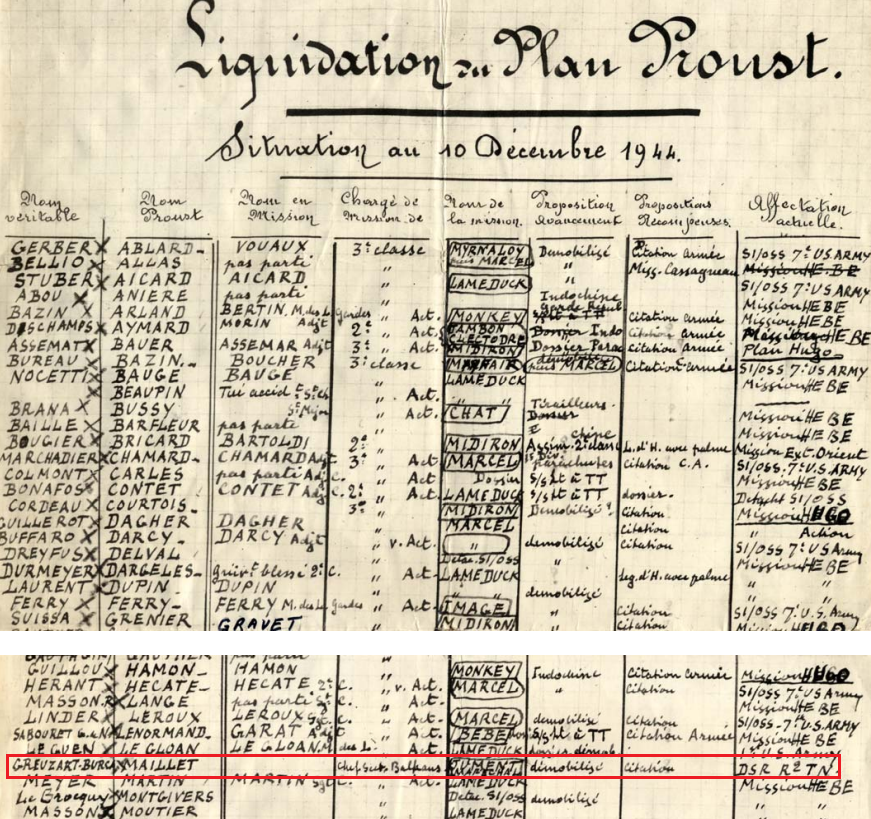 Liquidation du Plan Proust.
Situation au 10 Décembre 1944.
Nom véritable Nom Proust Nom en Mission Chargé de Mission de Nom de la mission. Proposition Avancement Propositions Récompenses. Affectation actuelle.
GERBER X ABLARD - VOUAUX 3e classe MYRNALOY puis MARCEL Demobilizé Citation Armée SI/OSS 7e US ARMY
BELLIO X ALLAS pas parti " " Mission HEBE
STUBER X AICARD AICARD " LAMEDUCK " SI/OSS 7e US ARMY
ABOU X ANIERE pas parti " Indochine Mission HEBE
BAZIN X ARLAND BERTIN. M. des L. Gardes " Act. MONKEY S/Lt à TT Citation armée Mission HEBE
DESCHAMPS X AYMARD MORIN Adjt 2e " Act. Dossier Indo Citation armée HEBE
ASSEMAT X BAUER ASSEMAR Adjt 3e " Act. MIDIRON Dossier Parac citation armée Plan Hugo
BUREAU X BAZIN.. BOUCHER 3e classe puis MARCEL Citation armée SI/OSS 7e US ARMY
NOCETTI X BAUGE BAUGE " LAMEDUCK Mission HEBE
X BEAUPIN Tué accid t " Act. "
BRANA X BUSSY " Act. CHAT Tirailleurs. Mission HEBE
BAILLE X BARFLEUR pas parti " Mission HEBE
BOUGIER X BRICARD BARTOLDI 2e " MIDIRON L. d'H. avec palme Mission Ext. Orient
MARCHADIER X CHAMARD - CHAMARD Adjt 3e " Act MARCEL parachutés citation C.A. SI/OSS. 7e U.S. ARMY
COLMONT X CARLES pas parti Adj C. " Dossier Mission HEBE
BONAFOS X CONTET CONTET Adj C. 2e " Act. LAMEDUCK S/Lt à TT dossier. Détacht SI/OSS
CORDEAU X COURTOIS. 3e " MIDIRON Demobilizé Citation Mission HUGO
GUILLEROT X DAGHER DAGHER " MARCEL Citation " Action
BUFFARO X DARCY - DARCY Adjt " v. Act. " demobilizé Citation SI/OSS 7e U S Army
DREYFUS X DELVAL " Détac. SI/OSS " Mission HEBE
DURMEYER X DARGELES - blessé 2e C. " Act - LAMEDUCK Leg. d'H. avec palme "
LAURENT X DUPIN DUPIN " " " demobilizé "
FERRY X FERRY - FERRY M. des L. Gardes " Act. IMAGE Citation SI/OSS 7e U.S. Army
SUISSA X GRENIER GRAVET " MIDIRON Citation
GUILLOU X HAMON - HAMON " MONKEY Indochine Citation Armée Mission HUGO
HERANT X HECATE - HECATE 2e C. " v. Act. MARCEL " Citation SI/OSS 7e US Army
MASSON.R X LANGE pas parti C. " Mission HEBE
LINDER X LEROUX LEROUX C. " Act. MARCEL demobilizé Citation SI/OSS - 7e U.S. ARMY
SABOURET G. de N X LENORMAND - GARAT Adjt " Act. BEBE S/Lt à TT citation Armée Mission HEBE
LE GUEN X LE GLOAN LE GLOAN M des L. " Act LAMEDUCK dossier. démob
GREUZART-BURCA X MAILLET Chef Balkans JUMENT démobilizé citation DSR R2 TN.
MEYER X MARTIN MARTIN Sgt C. " Act. Mission HEBE
Le Brocquy X MONTGIVERS " Detac. SI/OSS demobilizé
MASSON X MOUTIER " LAMEDUCK " "